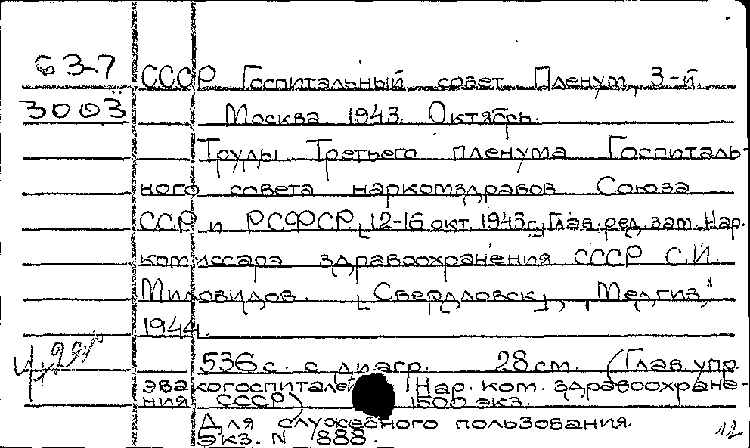 63-7
СССР Госпитальный совет Пленум, 3-й.
3003
Москва. 1943. Октябрь.
Труды Третьего пленума Госпиталь-
ного совета наркомздравов Союза
ССР и РСФСР, [12-16 окт. 1943 г.; Глав. ред. зам. Нар.
комиссара здравоохранения СССР С.И.
Миловидов. [Свердловск], "Медгиз,"
1944.
536 с. с диагр. 28 см. (Глав. упр.
эвакогоспиталей Нар. ком. здравоохране-
ния СССР) 1500 экз.
Для служебного пользования.
Экз. N 888.
12